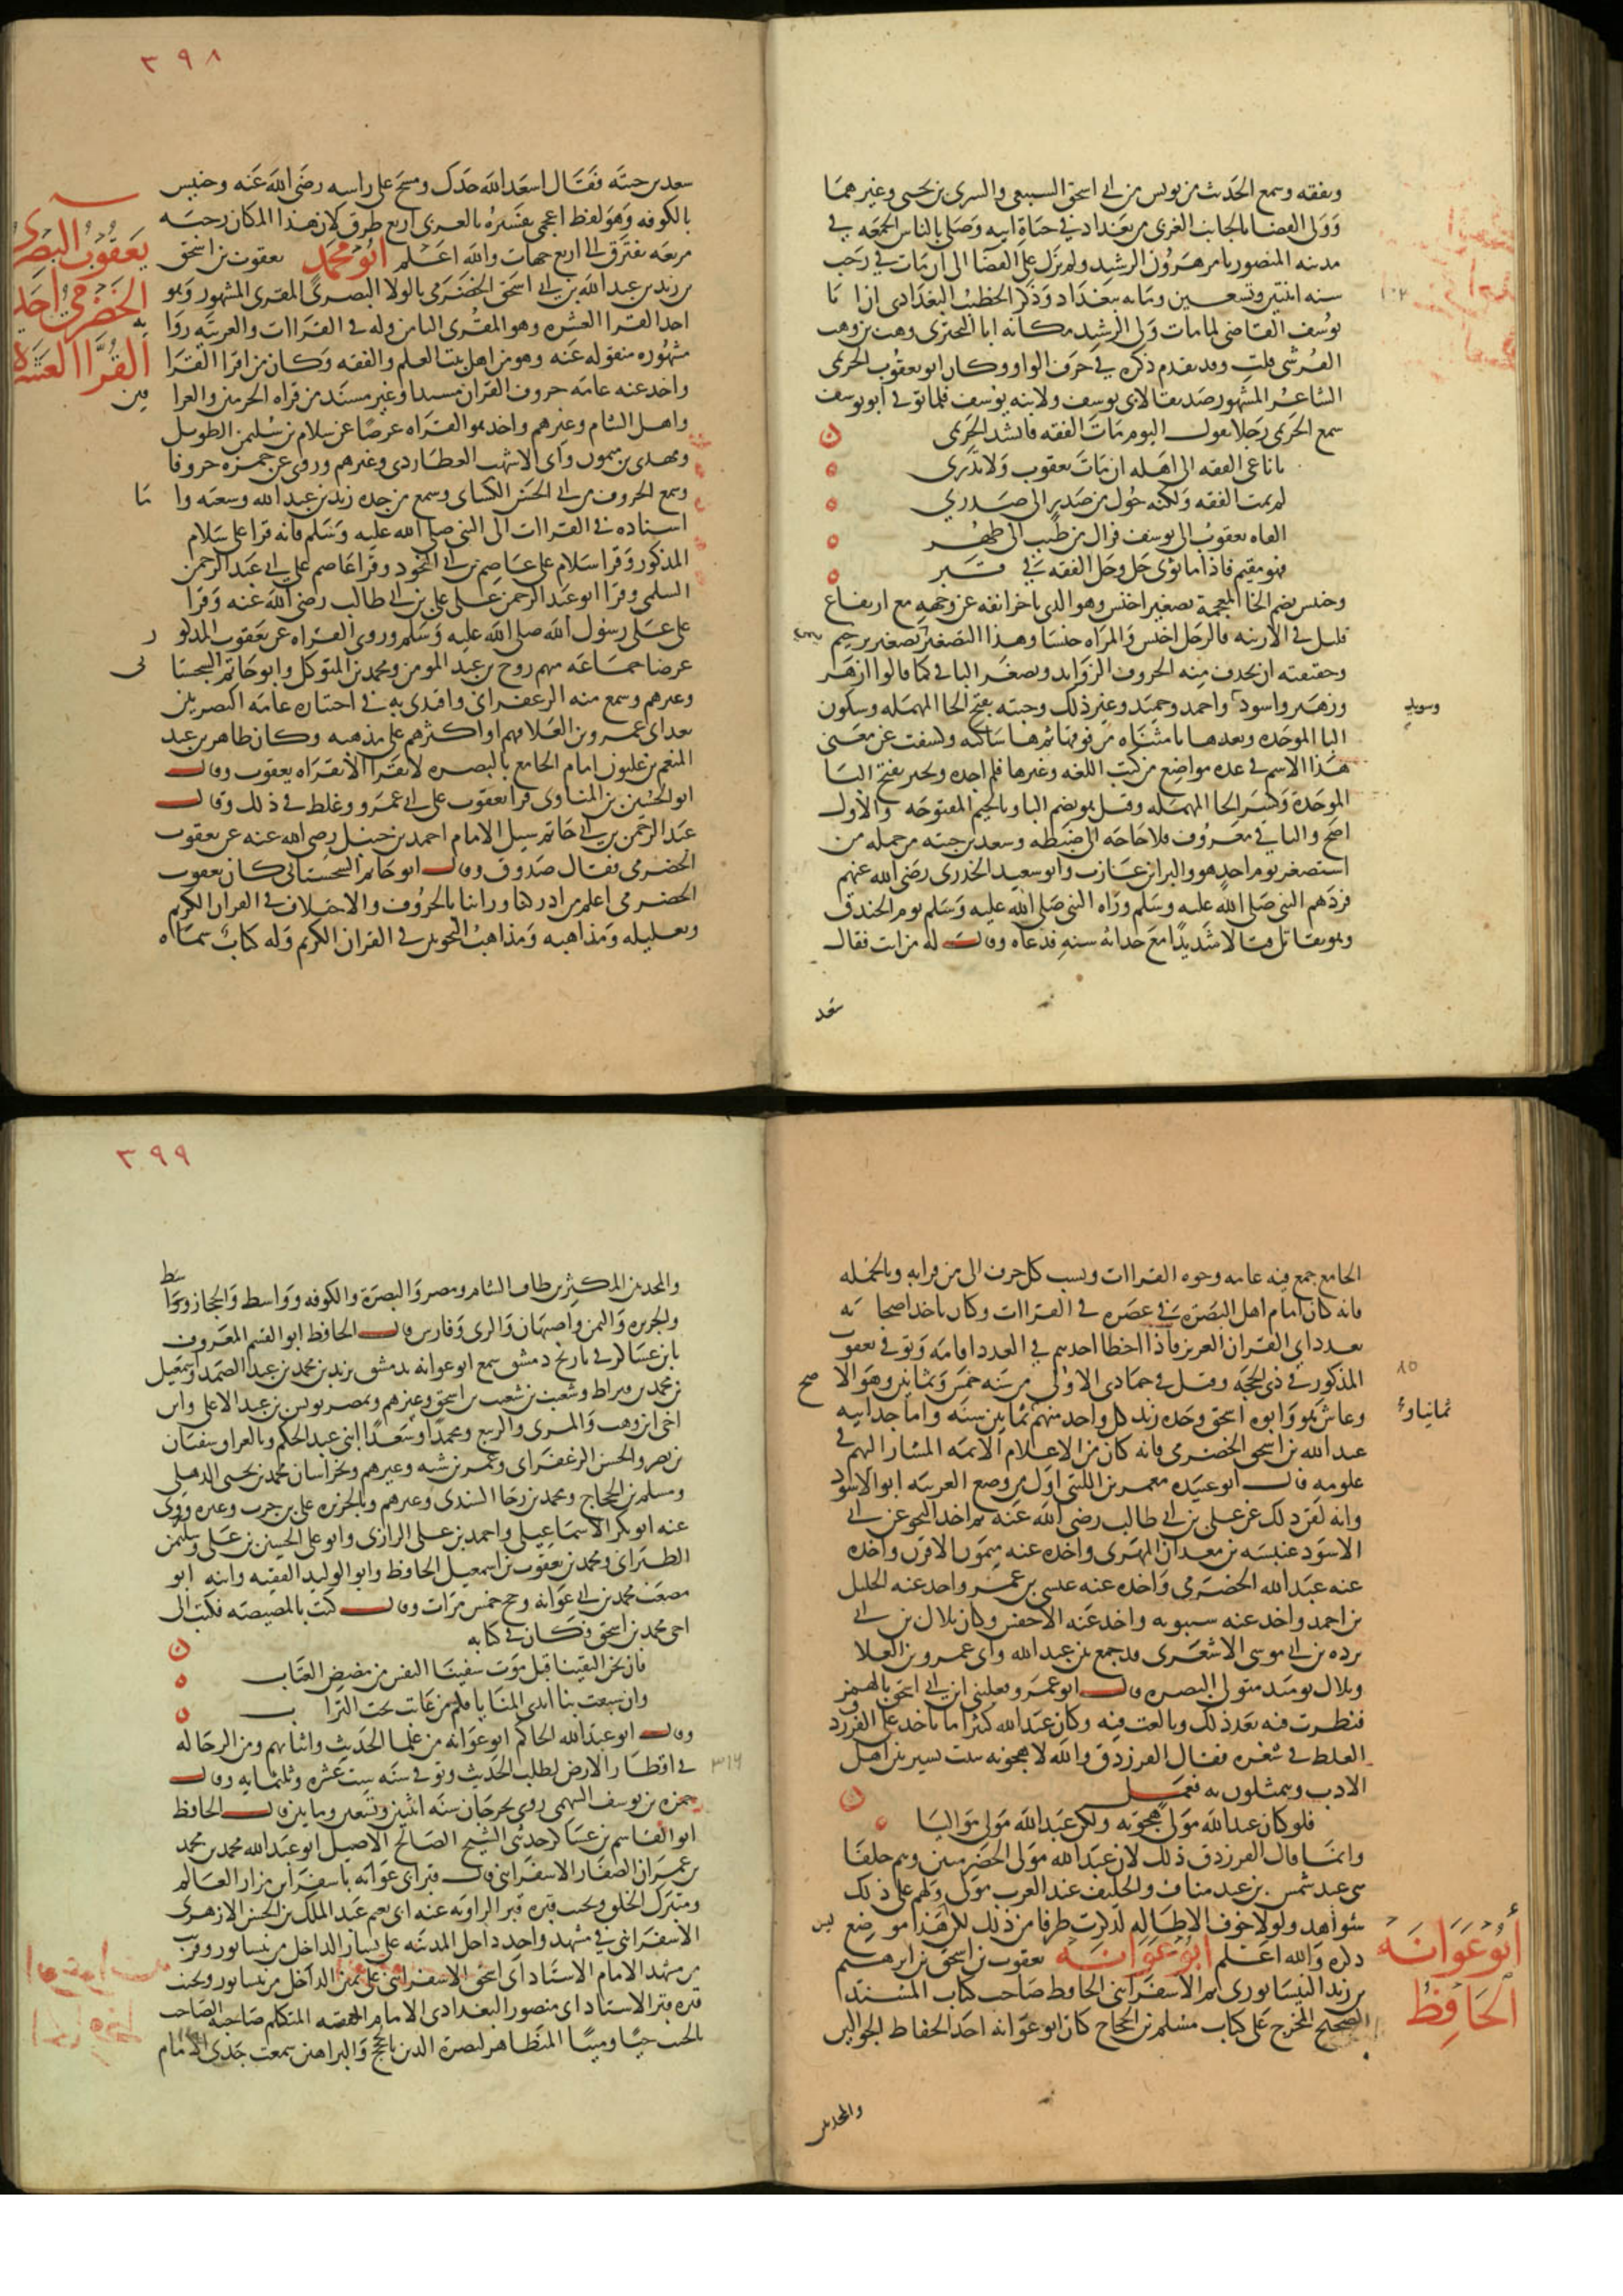 وتفقه وسمع الحديث من يونس بن ابي اسحق السبيعي والسري بن يحيى وغيرهما
وولى القضا بالجانب الغربي من بغداد في حياة ابيه وصلى بالناس الجمعه في
مدينه المنصور بامر هرون الرشيد ولم يزل على القضا الى ان مات في رجب
سنه اثنتين وتسعين ومايه ببغداد وذكر الخطيب البغدادي ان ابا
يوسف القاضي لما مات ولى الرشيد مكانه ابا البختري وهب بن وهب
القرشي قلت وقد تقدم ذكره في حرف الواو وكان ابو يعقوب الخريمي
الشاعر المشهور صديقا لابي يوسف ولابنه يوسف فلما توفي ابو يوسف
سمع الخريمي رجلا يقول اليوم مات الفقه فانشد الخريمي
يا ناعي الفقه الى اهله ان مات يعقوب ولا تدري
لم يمت الفقه ولكنه حول من صدر الى صدر
القاه يعقوب الى يوسف فزال من طيب الى طهر
فهو مقيم فاذا ما ثوى حل وحل الفقه في قبر
وخنيس بضم الخا المعجمة تصغير اخنس وهو الذي تاخر انفه عن وجهه مع ارتفاع
قليل في الارنبه فالرجل اخنس والمراه خنسا وهذا التصغير تصغير ترخيم
وحقيقته ان يحذف منه الحروف الزوايد ويصغر الباقي كما قالوا ازهر
وزهير واسود واحمد وحميد وغير ذلك وحبته بفتح الحا المهمله وسكون
وسويد
البا الموحده وبعدها تا مثناه من فوقها ثم ها ساكنه وكشفت عن معنى
هذا الاسم في عده مواضع من كتب اللغه وغيرها فلم اجده وبحير بفتح البا
الموحدة وكسر الحا المهمله وقيل هو بضم البا وبالجيم المفتوحه والاول
اصح والباقي معروف فلا حاجه الى ضبطه وسعد بن حبته من جمله من
استصغر يوم احد هو والبرا بن عازب وابو سعيد الخدري رضي الله عنهم
فردهم النبي صلى الله عليه وسلم وراه النبي صلى الله عليه وسلم يوم الخندق
وهو يقاتل قتالا شديدا مع حداثه سنه فدعاه وقال له من انت فقال
سعد
٣٩٨
سعد بن حبته فقال اسعد الله جدك ومسح على راسه رضي الله عنه وخنيس
بالكوفه وهو لفظ اعجمي تفسيره بالعربي اربع طرق لان هذا المكان رحبه
مربعه تفترق الى اربع جهات والله اعلم ابو محمد يعقوب بن اسحق
يعقوب البصري
الحضرمي احد
القرا العشرة
بن زيد بن عبد الله بن ابي اسحق الحضرمي بالولا البصري المقرى المشهور وهو
احد القرا العشره وهو المقرى الثامن وله في القراات والعربيه روايه
مشهوره منقوله عنه وهو من اهل بيت العلم والفقه وكان من اقرا القرا
واخذ عنه عامه حروف القران مسندا وغير مسند من قراه الحرمين والعراقين
واهل الشام وغيرهم واخذ هو القراه عرضا عن سلام بن سليمن الطويل
ومهدي بن ميمون وابي الاشهب العطاردي وغيرهم وروى عن حمزه حروفا
وسمع الحروف من ابي الحسن الكساى وسمع من جده زيد بن عبد الله وسعبه واما
اسناده في القراات الى النبي صلى الله عليه وسلم فانه قرا على سلام
المذكور وقرا سلام على عاصم بن ابي النجود وقرا عاصم على ابي عبد الرحمن
السلمي وقرا ابو عبد الرحمن على علي بن ابي طالب رضي الله عنه وقرا
على على رسول الله صلى الله عليه وسلم وروى القراه عن يعقوب المذكور
عرضا جماعه منهم روح بن عبد المومن ومحمد بن المتوكل وابو حاتم السجستانى
وغيرهم وسمع منه الزعفراني واقتدى به في اختياره عامه البصريين
بعد ابي عمرو بن العلا فهم او اكثرهم على مذهبه وكان طاهر بن عبد
المنعم بن غلبون امام الجامع بالبصره لا يقرا الا بقراه يعقوب وقال
ابو الحسين بن المنادي قرا يعقوب على ابي عمرو وغلط في ذلك وقال
عبد الرحمن بن ابي حاتم سيل الامام احمد بن حنبل رضي الله عنه عن يعقوب
الحضرمي فقال صدوق وقال ابو حاتم السجستاني كان يعقوب
الحضرمي اعلم من ادركنا وراينا بالحروف والاختلاف في القران الكريم
وتعليله ومذاهبه ومذاهب النحويين في القران الكريم وله كتاب سماه
الجامع جمع فيه عامه وجوه القراات ونسب كل حرف الى من قرا به وبالجمله
فانه كان امام اهل البصره في عصره في القراات وكان ياخذ اصحابه
بعدد اي القران العزيز فاذا اخطا احدهم في العدد اقامه وتوفي يعقوب
المذكور في ذي الحجه وقيل في جمادى الاولى من سنه خمس وثمانين وهو الا صح
وعاش هو وابوه اسحق وجده زيد كل واحد منهم ثمانين سنه واما جد ابيه
ثمانيا و
عبد الله بن اسحق الحضرمي فانه كان من الاعلام الائمه المشار اليهم في
علومه قال ابو عبيده معمر بن المثنى اول من وضع العربيه ابو الاسود
وانه لقن ذلك عن على بن ابي طالب رضي الله عنه ثم اخذ النحو عن ابي
الاسود عنبسه بن معدان المهري واخذه عنه ميمون الاقرن واخذه
عنه عبد الله الحضرمي واخذه عنه عيسى بن عمر واخذ عنه الخليل
بن احمد واخذ عنه سيبويه واخذ عنه الاخفش وكان بلال بن ابي
برده بن ابي موسى الاشعري قد جمع بين عبد الله وابي عمرو بن العلا
وبلال يومئذ متولي البصره قال ابو عمرو فغلبني ابن ابي اسحق بالهمز
فنظرت فيه بعد ذلك وبالغت فيه وكان عبد الله كثيرا ما ياخذ على الفرزدق
الغلط في شعره فقال الفرزدق والله لاهجونه ببيت يسير بين اهل
الادب ويتمثلون به فعمل
فلو كان عبد الله مولى هجوته ولكن عبد الله مولى مواليا
وانما قال الفرزدق ذلك لان عبد الله مولى الحضرميين وهم حلفا
بني عبد شمس بن عبد مناف والحليف عند العرب مولى ولهم على ذلك
شواهد ولولا خوف الاطاله لذكرت طرفا من ذلك لكن هذا موضع ليس
ذكره والله اعلم ابو عوانه يعقوب بن اسحق بن ابرهيم
ابو عوانه
الحافظ
بن زيد النيسابوري ثم الاسفرايني الحافظ صاحب كتاب المسند
الصحيح المخرج على كتاب مسلم بن الحجاج كان ابو عوانه احد الحفاظ الجوالين
والمحدثين
٣٩٩
والمحدثين المكثرين طاف الشام ومصر والبصرة والكوفه وواسط والحجاز
والجزيره واليمن واصبهان والري وفارس قال الحافظ ابو القسم المعروف
بابن عساكر في تاريخ دمشق سمع ابو عوانه بدمشق يزيد بن محمد بن عبد الصمد واسمعيل
بن محمد بن قيراط وشعيب بن شعيب بن اسحق وغيرهم وبمصر يونس بن عبد الاعلى وابن
اخي ابن وهب والمزني والربيع ومحمدا وسعدا ابني عبد الحكم وبالعراق سفيان
بن نصر والحسن الزعفراني وعمر بن شبه وغيرهم وبخراسان محمد بن يحيى الذهلي
ومسلم بن الحجاج ومحمد بن رجا السندي وغيرهم وبالجزيره على بن حرب وغيره وروى
عنه ابو بكر الاسماعيلي واحمد بن على الرازي وابو على الحسين بن على وسليمن
الطبراني ومحمد بن يعقوب بن اسمعيل الحافظ وابو الوليد الفقيه وابنه ابو
مصعب محمد بن ابي عوانه وحج خمس مرات وقال كنت بالمصيصه فكتب الى
اخي محمد بن اسحق فكان في كتابه
فان نحن التقينا قبل موت شفينا النفس من مضيض العتاب
وان سبقت بنا ايدي المنايا فكم من غايب تحت التراب
وقال ابو عبد الله الحاكم ابو عوانه من علما الحديث واثباتهم ومن الرحاله
في اقطار الارض لطلب الحديث وتوفي سنه ست عشره وثلثمايه وقال
٣١٦
حمزه بن يوسف السهمي روى بجرجان سنه اثنتين وتسعين ومايتين قال الحافظ
ابو القاسم بن عساكر حدثني الشيخ الصالح الاصيل ابو عبد الله محمد بن محمد
بن عمر ان الصفار الاسفرايني قال قبر ابي عوانه باسفراين مزار العالم
ومتبرك الخلق وبجنب قبره قبر الراويه عنه ابي نعيم عبد الملك بن الحسن الازهري
الاسفرايني في مشهد واحد داخل المدينه على يسار الداخل من نيسابور وقريب
من مشهده مشهد الامام الاستاد ابي اسحق الاسفرايني على يمين الداخل من نيسابور وبجنب
قبره قبر الاستاد ابي منصور البغدادي الامام الفقيه المتكلم صاحبه الصاحب
بالجنب حيا وميتا المتظاهر لنصرة الدين بالحجج والبراهين سمعت جدي الامام